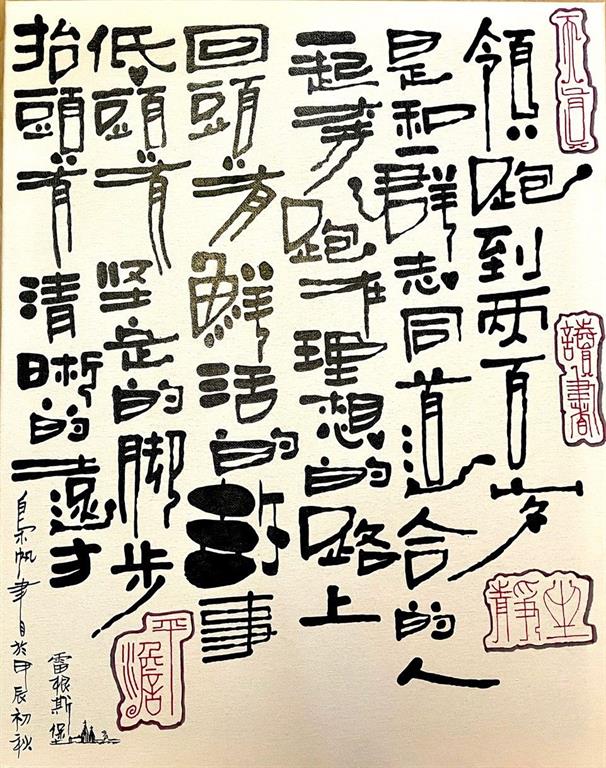 領跑到两百岁
是和一群志同道合的人
一起奔跑在理想的路上
回頭有鮮活的故事
低頭有坚定的脚步
抬頭有清晰的遠方
帆聿自於甲辰初秋
雷根斯堡
讀書
靜坐
平澹